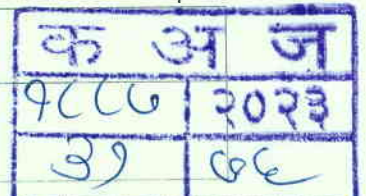 क अ ज
१८८७ २०२३
३१ ७६